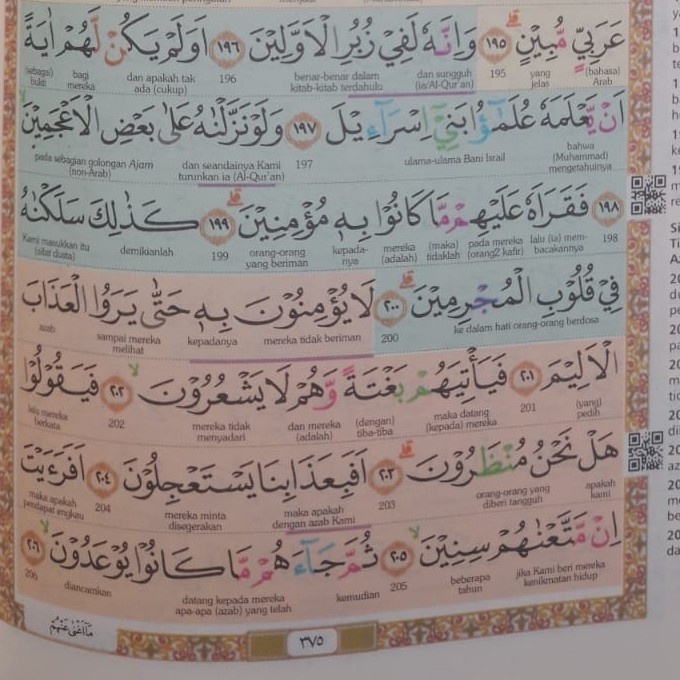 عَرَبِيٍّ مُّبِيْنٍ ۝١٩٥ وَاِنَّهٗ لَفِيْ زُبُرِ الْاَوَّلِيْنَ ۝١٩٦ اَوَلَمْ يَكُنْ لَّهُمْ اٰيَةً
(bahasa) Arab yang jelas 195 dan sungguh (ia/Al-Qur'an) benar-benar dalam kitab-kitab terdahulu 196 dan apakah tak ada (cukup) bagi mereka (sebagai) bukti
اَنْ يَّعْلَمَهٗ عُلَمٰۤؤُا بَنِيْٓ اِسْرَاۤءِيْلَ ۝١٩٧ وَلَوْ نَزَّلْنٰهُ عَلٰى بَعْضِ الْاَعْجَمِيْنَ
bahwa (Muhammad) mengetahuinya ulama-ulama Bani Israil 197 dan seandainya Kami turunkan ia (Al-Qur'an) pada sebagian golongan Ajam (non-Arab)
۝١٩٨ فَقَرَاَهٗ عَلَيْهِمْ مَّا كَانُوْا بِهٖ مُؤْمِنِيْنَ ۝١٩٩ كَذٰلِكَ سَلَكْنٰهُ
198 lalu (ia) membacakannya pada mereka (orang2 kafir) (maka) tidaklah mereka (adalah) kepada-nya orang-orang yang beriman 199 demikianlah Kami masukkan itu (sifat dusta)
فِيْ قُلُوْبِ الْمُجْرِمِيْنَ ۝٢٠٠ لَا يُؤْمِنُوْنَ بِهٖ حَتّٰى يَرَوُا الْعَذَابَ
ke dalam hati orang-orang berdosa 200 mereka tidak beriman kepadanya sampai mereka melihat azab
الْاَلِيْمَ ۝٢٠١ فَيَأْتِيَهُمْ بَغْتَةً وَّهُمْ لَا يَشْعُرُوْنَ ۝٢٠٢ فَيَقُوْلُوْا
(yang) pedih 201 maka datang (kepada) mereka (dengan) tiba-tiba dan mereka (adalah) mereka tidak menyadari 202 lalu mereka berkata
هَلْ نَحْنُ مُنْظَرُوْنَ ۝٢٠٣ اَفَبِعَذَابِنَا يَسْتَعْجِلُوْنَ ۝٢٠٤ اَفَرَءَيْتَ
apakah kami orang-orang yang diberi tangguh 203 maka apakah dengan azab Kami mereka minta disegerakan 204 maka apakah pendapat engkau
اِنْ مَّتَّعْنٰهُمْ سِنِيْنَ ۝٢٠٥ ثُمَّ جَاۤءَهُمْ مَّا كَانُوْا يُوْعَدُوْنَ ۝٢٠٦
jika Kami beri mereka kenikmatan hidup beberapa tahun 205 kemudian datang kepada mereka apa-apa (azab) yang telah diancamkan 206
مَآ اَغْنٰى عَنْهُمْ
٣٧٥